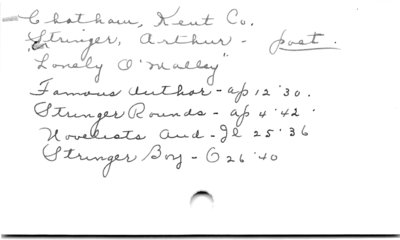 Chatham, Kent Co.
Stringer, Arthur - poet.
"Lonely O'Malley"
Famous Author - ap 12 '30.
Stringer Rounds - ap 4 '42
Novelists Aud - Jl 25 '36
Stringer Boy - O 26 '40